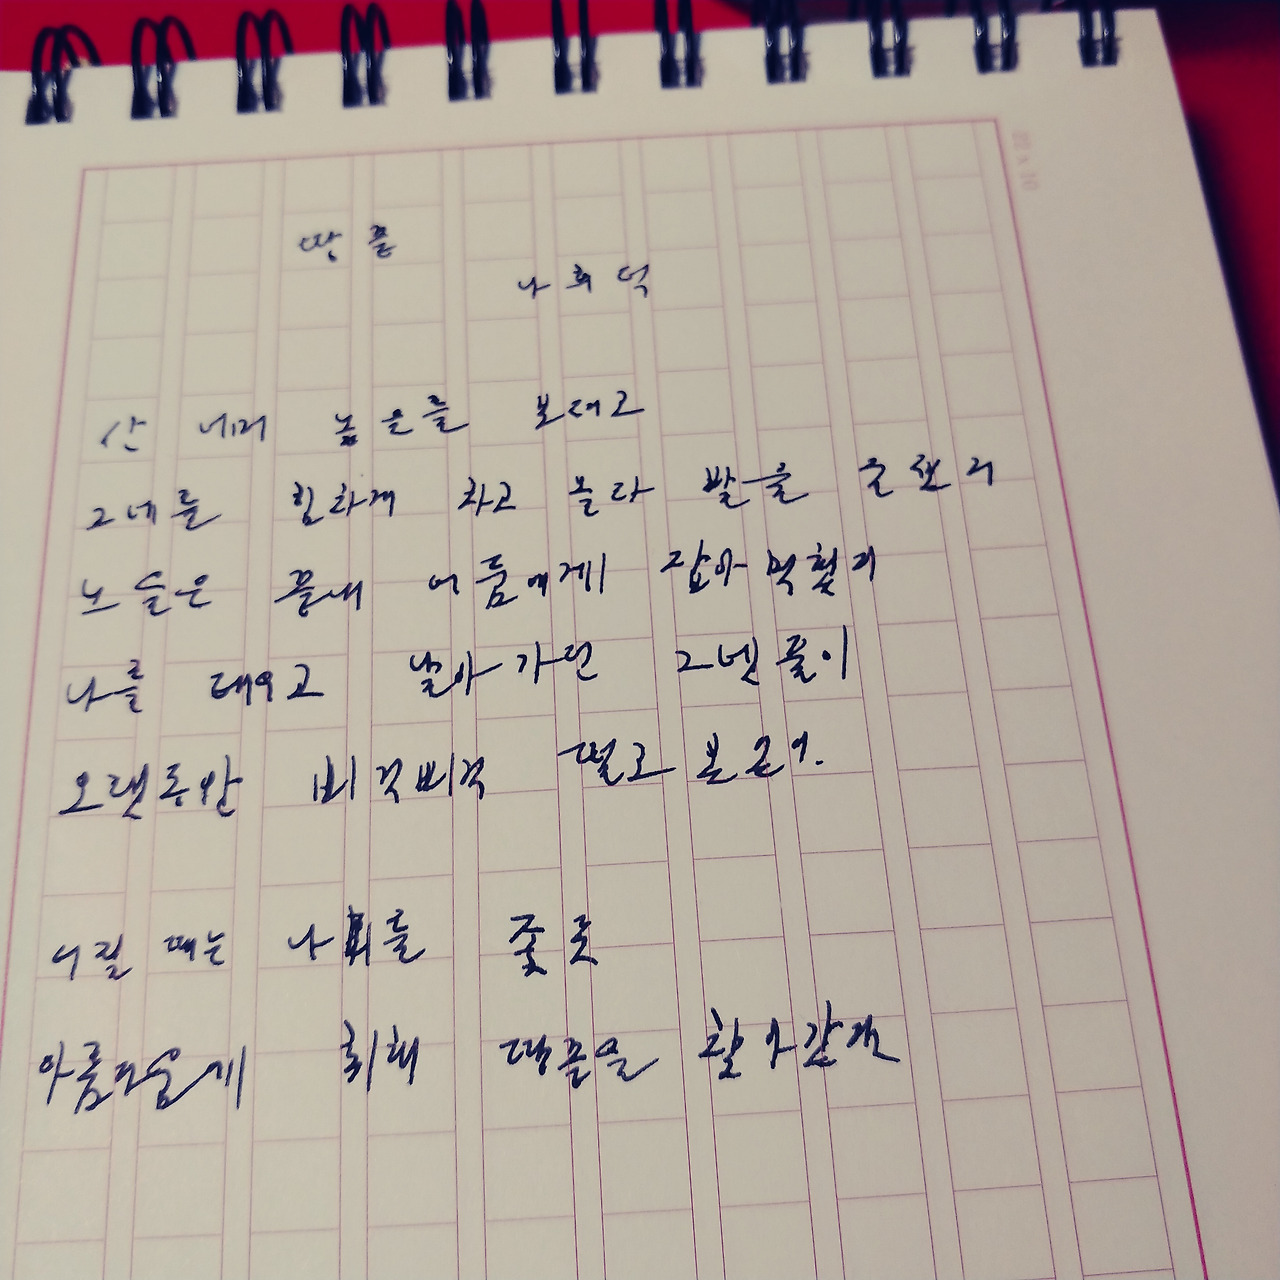 땅끝
나희덕
산 너머 보려고
그네를 힘차게 차고 올라 발을 굴렀지
노을은 끝내 어둠에게 잡아먹혔지
나를 태우고 날아가던 그넷줄이
오랫동안 삐걱삐걱 떨고
어릴 때는 나비를 쫓듯
아름다움에 취해 땅끝을 찾아갔지
20 x 10